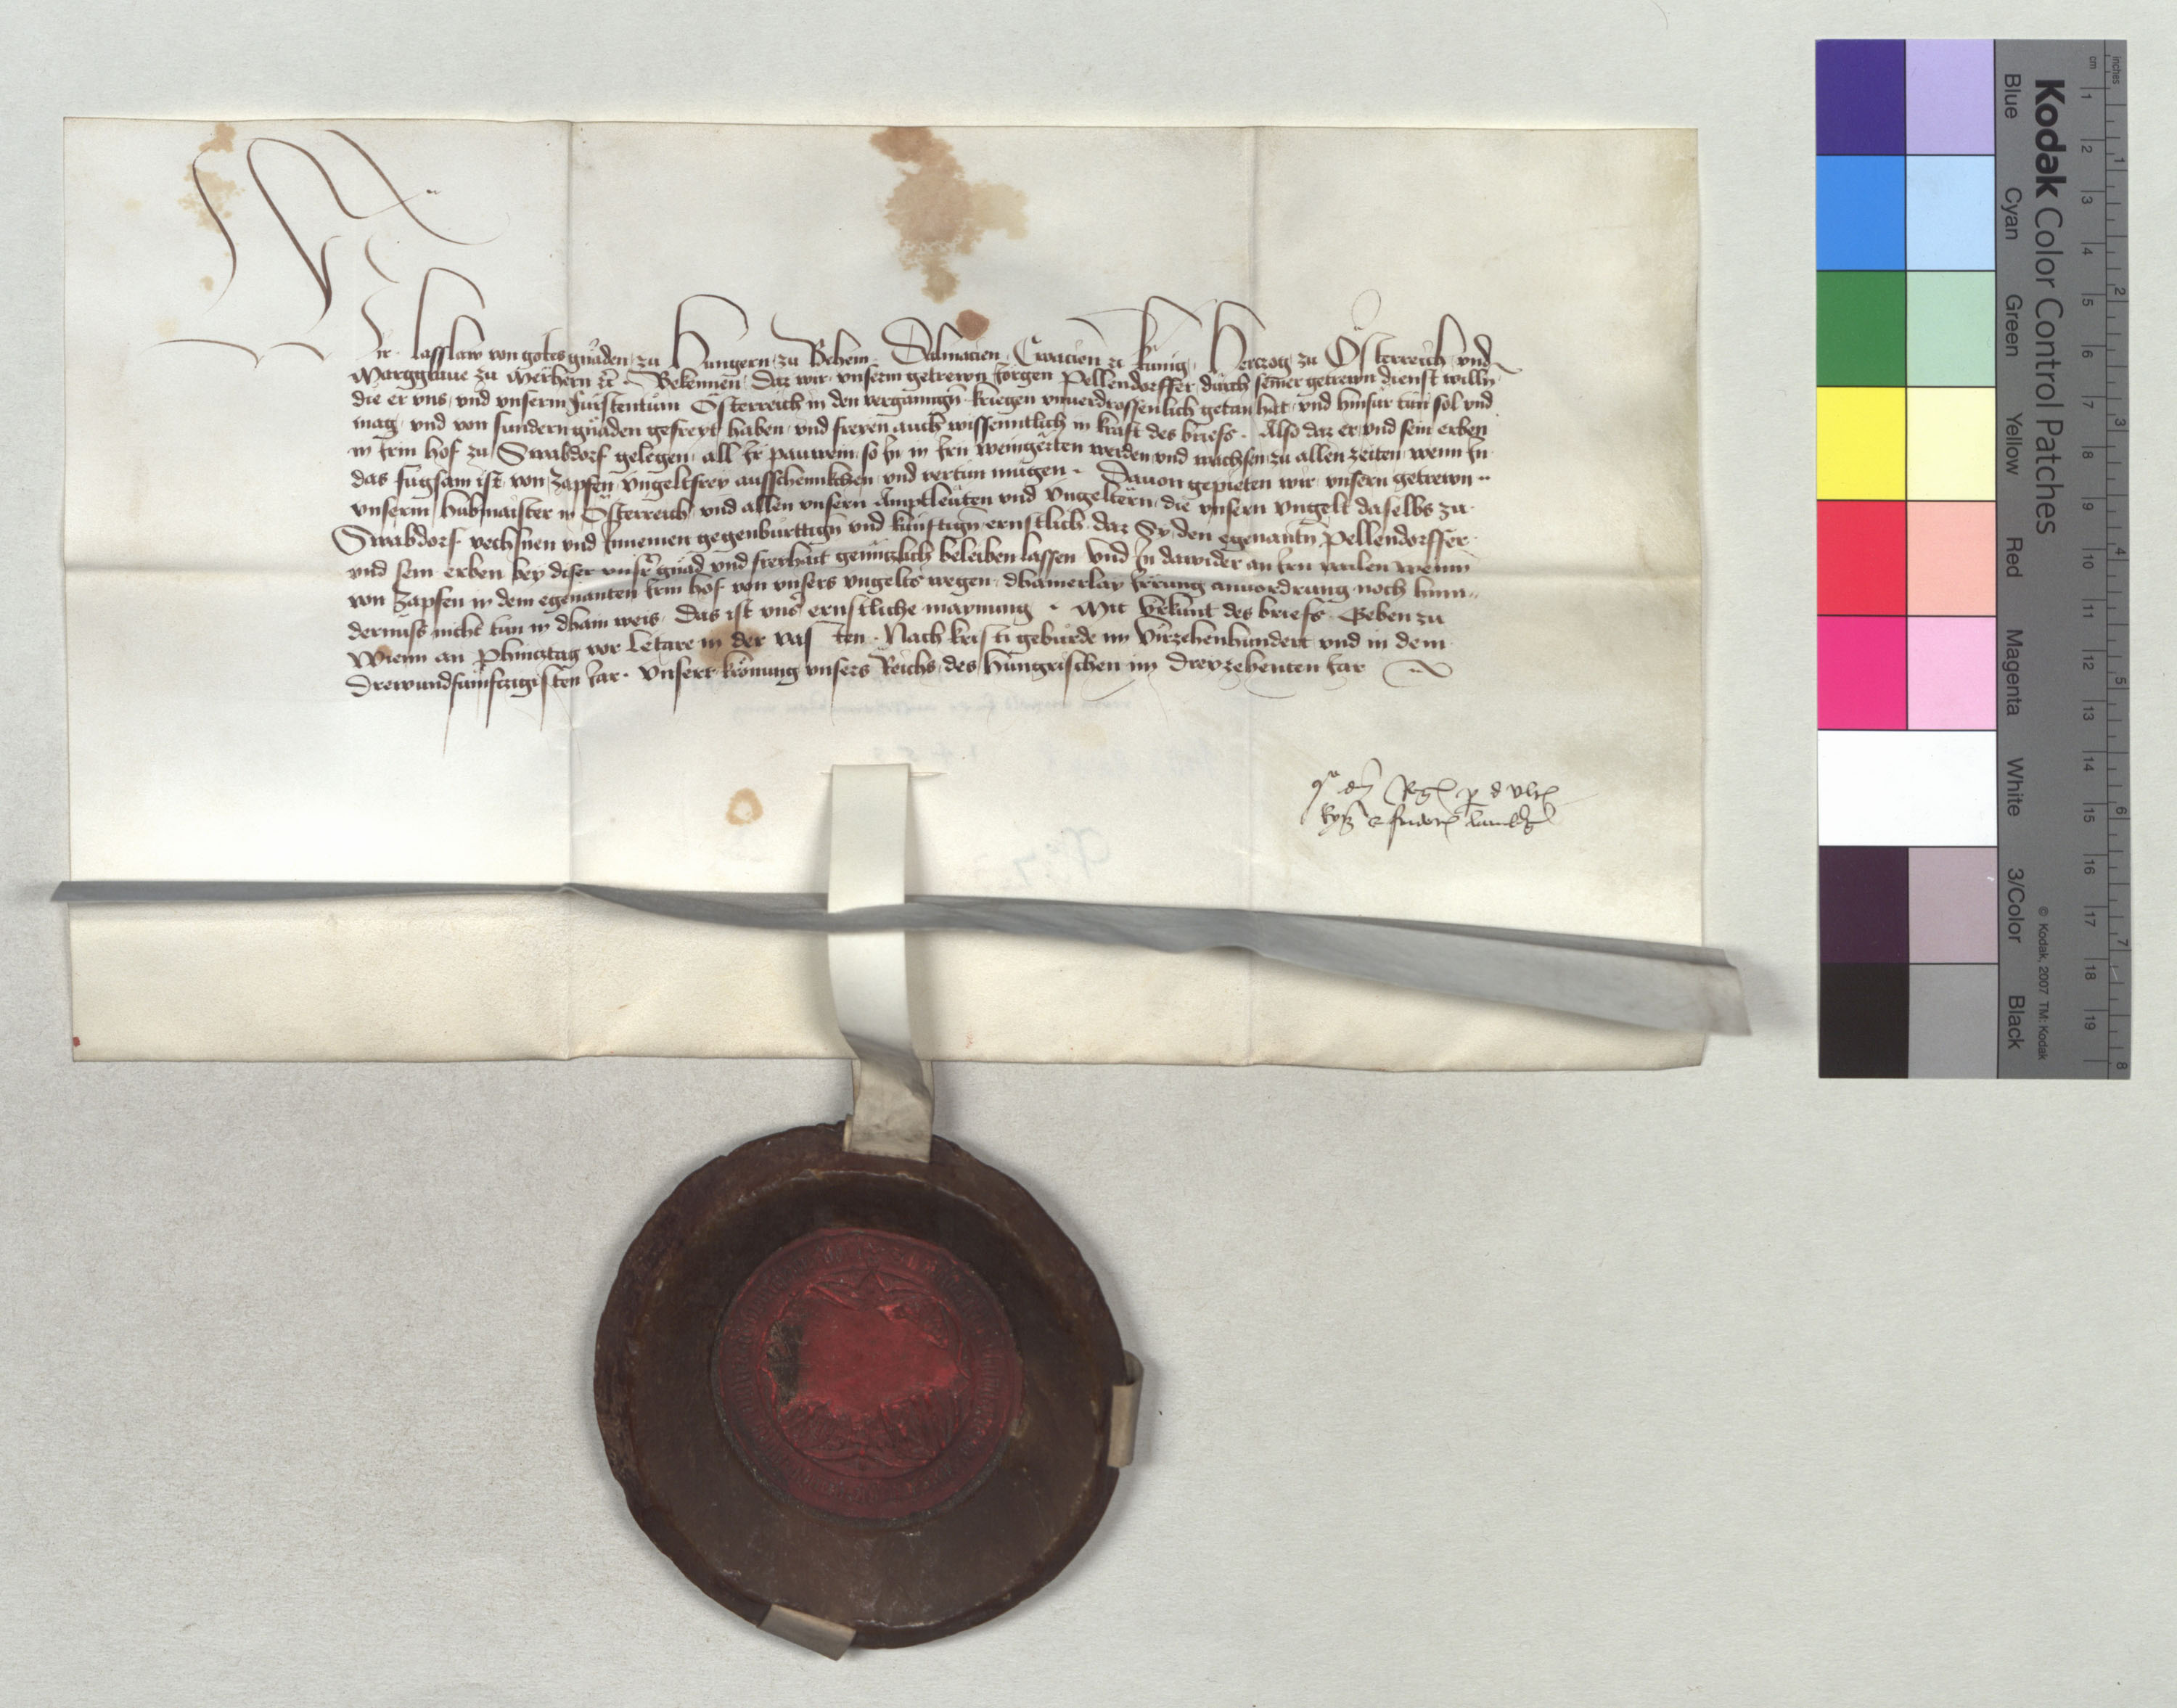 Wir Lasslaw von gotes gnaden zu Hungern zu Behem Dalmacien Croacien etc kunig Herczog zu Österreich und
Marggraue zu Merhern etc Bekennen daz wir unserm getrewn Jorgen Pellendorffer durch seiner getrewn dienst willn
die er uns und unserm furstentum Österreich in den vergangn kriegen unuerdrossenlich getan hat und hinfur tun sol und
mag und von sundern gnaden gefreyt haben und freyen auch wissenntlich in kraft des briefs Also daz er und sein erben
in irm hof zu Swabdorf gelegen all Ir pauwein so In in Irn weingerten werden und wachsen zu allen zeiten wenn In
das fugsam ist von zapfen ungeltfrey ausschennkhen und vertun mugen Dauon gepieten wir unsern getrewn
unserm hubmaister in Österreich und allen unsern Amptleuten und Ungeltern die unsern ungelt daselbs zu
Swabdorf vechsnen und Innemen gegenburttign und kunftign ernstlich daz Sy den egenantn Pellendorffer
und sein erben bey diser unsrer gnad und freyhait genntzlich beleiben lassen und In dawider an Irn weilen wenn
von zapfen in dem egenanten Irm hof von unsers ungelts wegen dhainerlay Irrung anuordrung noch hinn
dernuss nicht tun in dhain weis Das ist unser ernstliche maynung Mit urkunt des briefs Geben zu
Wienn an Phincztag vor Letare in der vasten Nach kristi geburde im virzehenhundert und in dem
drewundfumfczigisten Jar Unserr kronung unsers Reichs des Hungrischen im dreyzehenten Jar
Kodak Color Control Patches
Blue Cyan Green Yellow Red Magenta White 3/Color Black
© Kodak, 2007 TM: Kodak
inches 1 2 3 4 5 6 7 8
cm 1 2 3 4 5 6 7 8 9 10 11 12 13 14 15 16 17 18 19